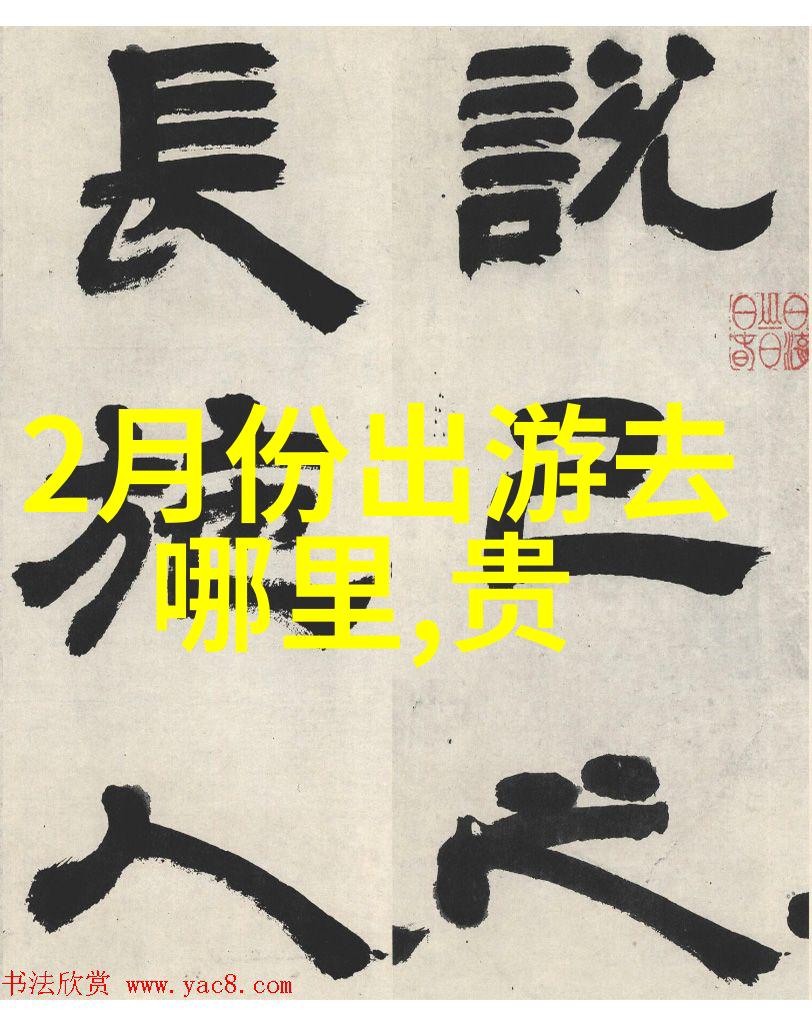 說己之
長施人
2月份出游去
哪里,贵
书法欣赏 www.yac8.com